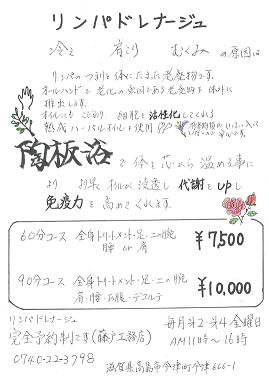 リンパドレナージュ
冷え 肩こり むくみ の原因は
リンパのつまりと体にたまった老廃物です。
オールハンドで老化の原因である老廃物を体外に
排出します。
オイルにもこだわり 細胞を活性化してくれる
熟成ハーバルオイルを使用
陶板浴 で体を芯から温める事に
より より早くオイルが浸透し代謝をupし
免疫力を高めてくれます。
60分コース 全身トリートメント・足・二の腕 ¥7,500
腰 or 肩
90分コース 全身トリートメント・足・二の腕 ¥10,000
肩・腰・お腹・デコルテ
リンパドレナージュ 毎月第2・第4金曜日
完全予約制です(藤戸工務店) AM11時〜16時
0740-22-3798 滋賀県高島市今津町今津666-1